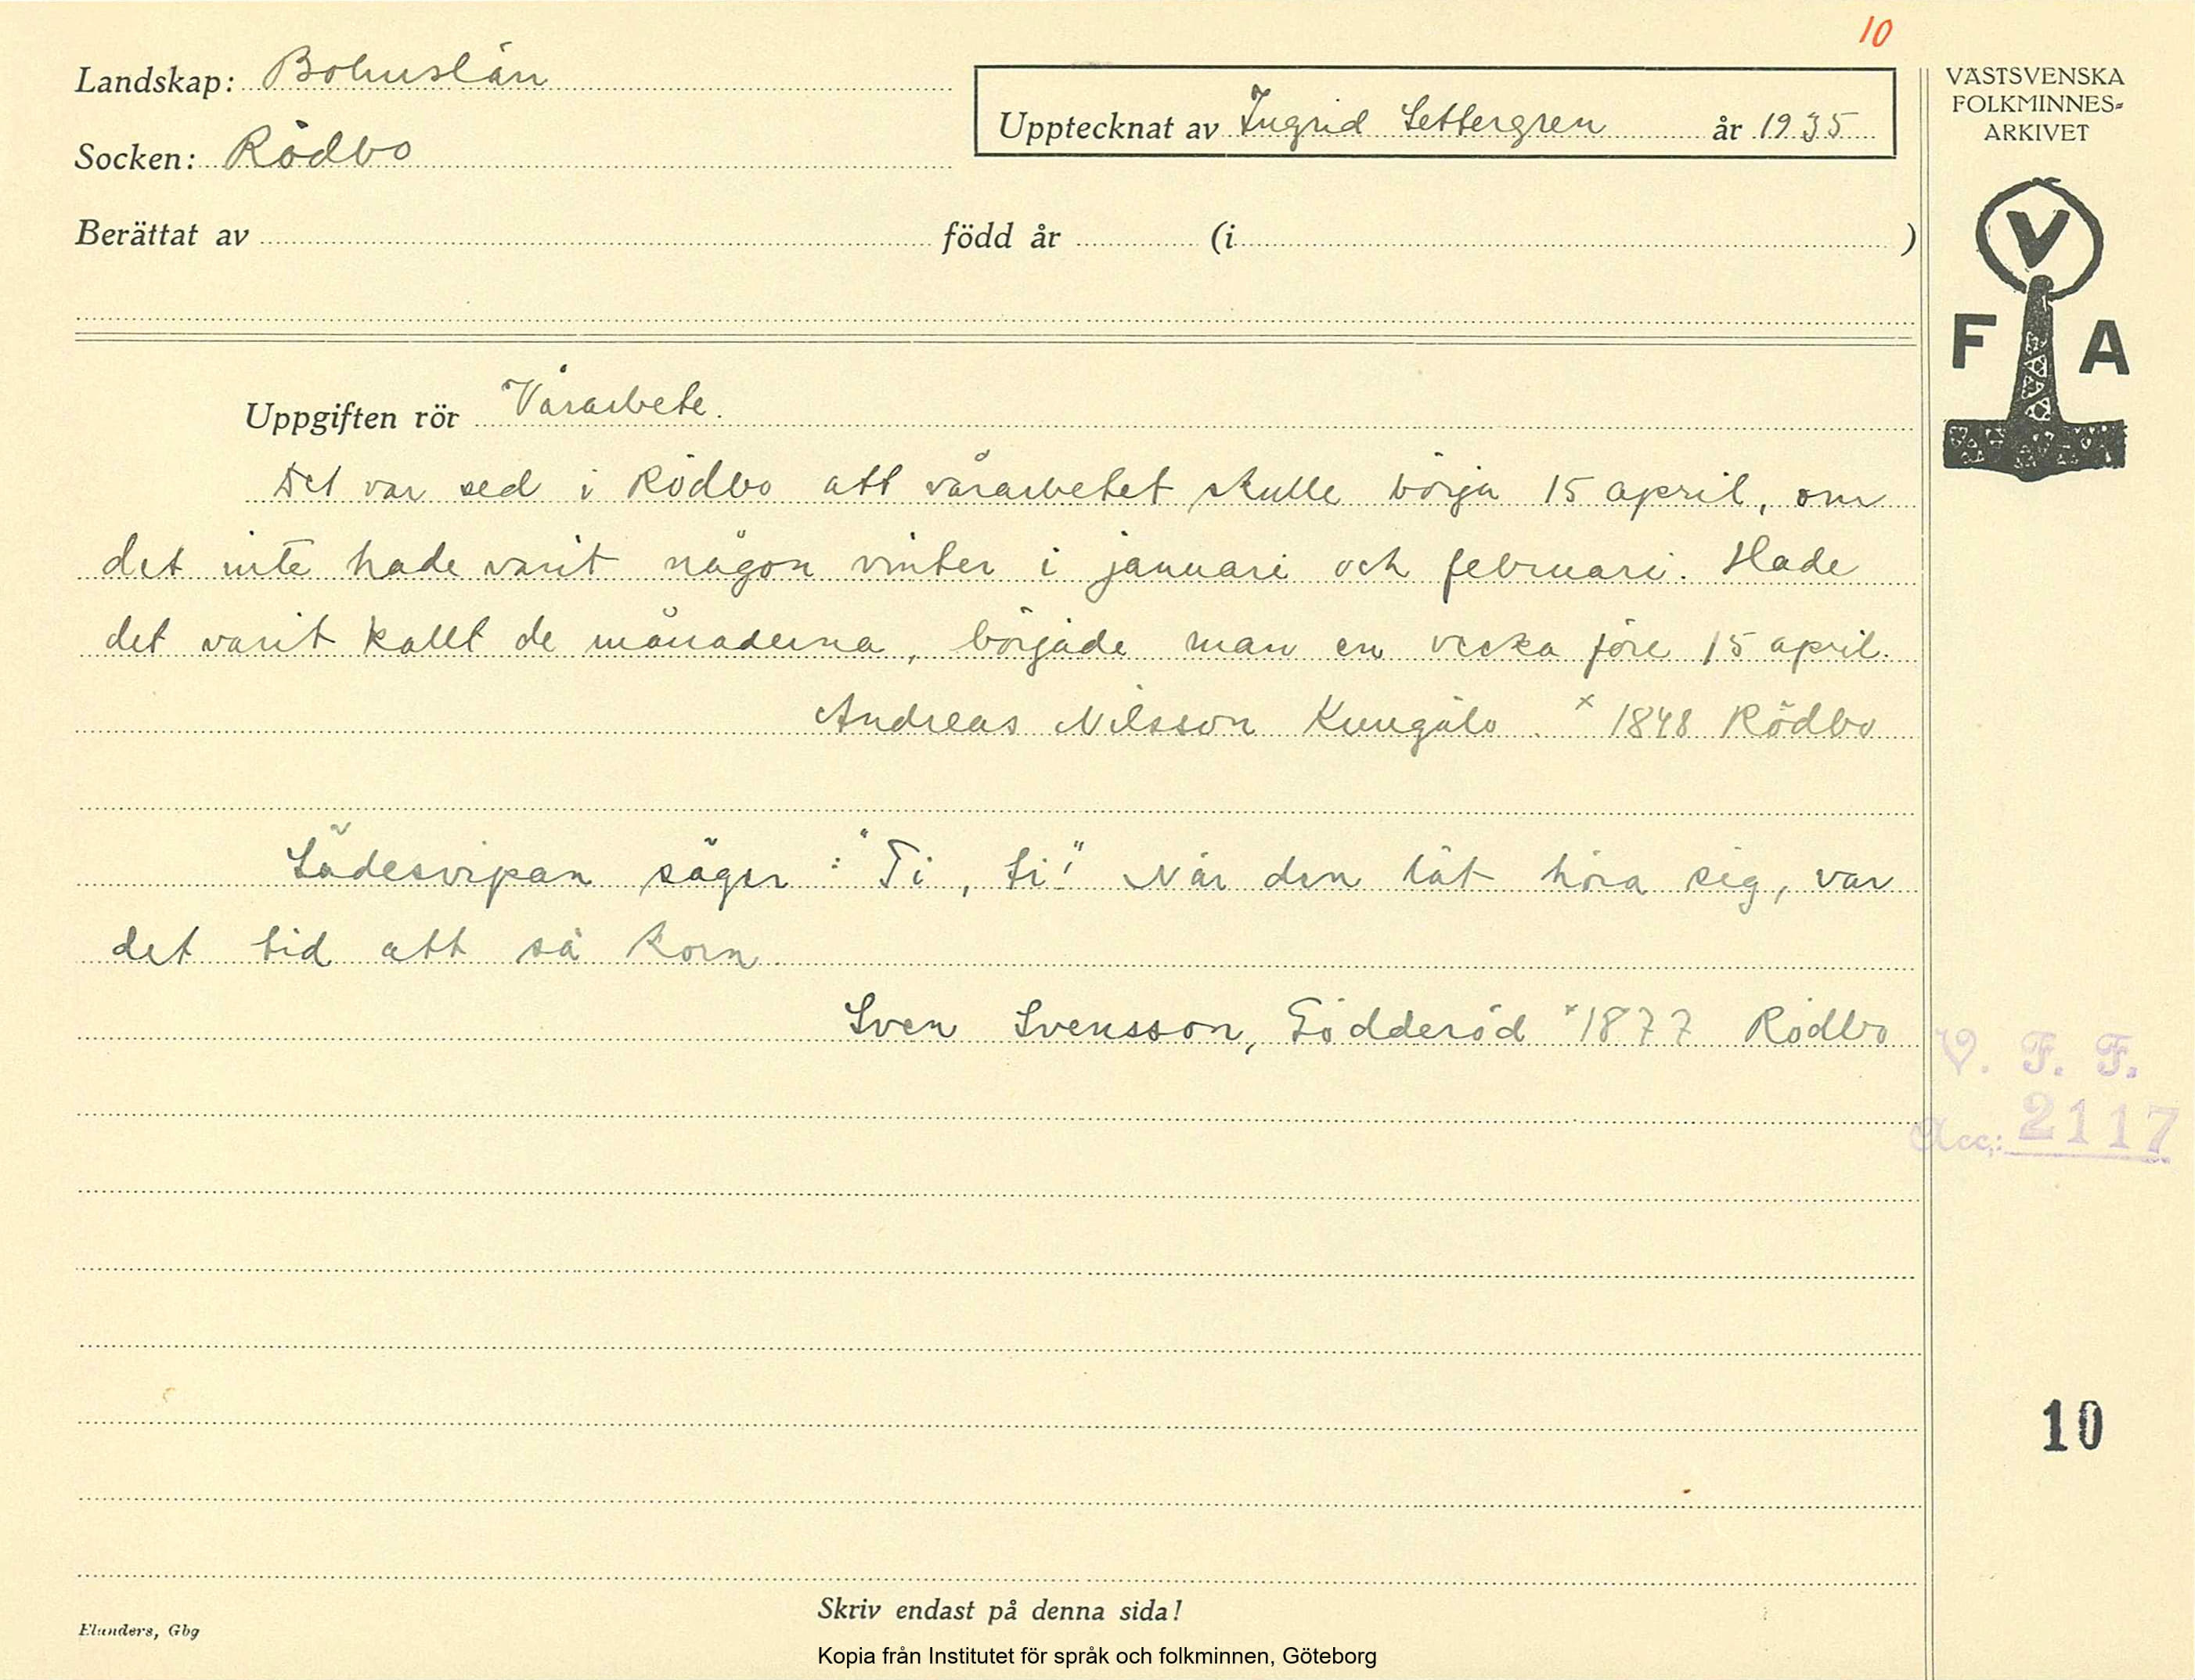 10
Landskap: Bohuslän
Socken: Rödbo
Upptecknat av Ingrid Settergren år 1935
VÄSTSVENSKA
FOLKMINNES-
ARKIVET
V
F A
Berättat av född år (i )
Uppgiften rör Vårarbete.
Det var sed i Rödbo att vårarbetet skulle börja 15 april, om
det inte hade varit någon vinter i januari och februari. Hade
det varit kallt de månaderna, började man en vecka före 15 april.
Andreas Nilsson Kungälv. x 1848 Rödbo
Sädesvipan säger: "Ti, ti!" När den lät höra sig, var
det tid att så korn.
Sven Svensson, Södderöd x 1877 Rödbo
V. F. F.
Acc.: 2117
10
Skriv endast på denna sida!
Elanders, Gbg
Kopia från Institutet för språk och folkminnen, Göteborg